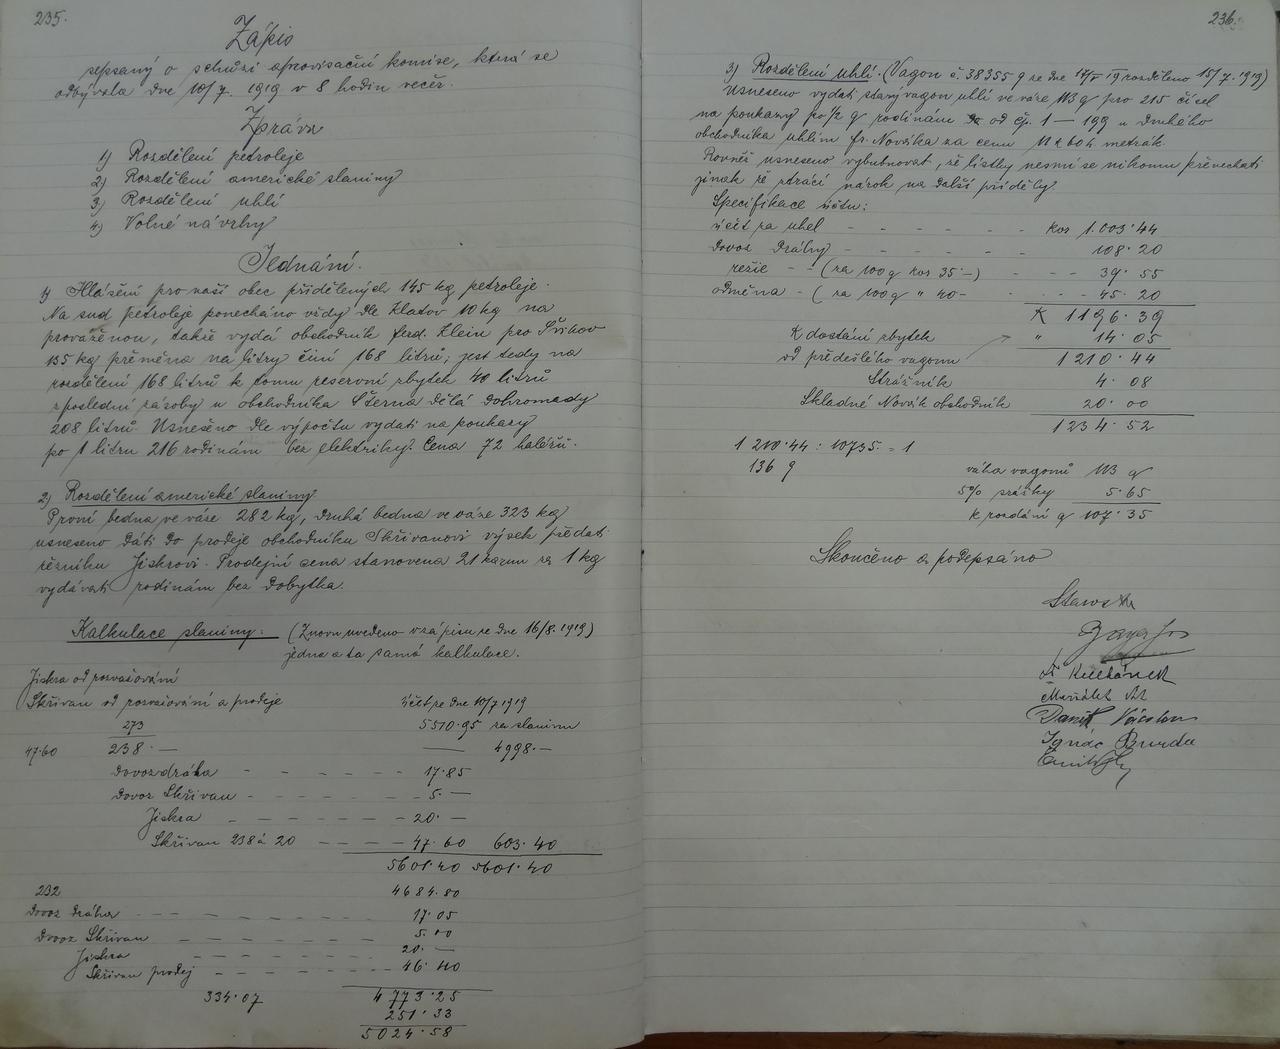 235.
Zápis
sepsaný o schůzi aprovisační komise, která se
odbývala dne 10/7. 1919 v 8 hodin večer.
Zpráva
1) Rozdělení petroleje
2) Rozdělení americké slaniny
3) Rozdělení uhlí
4) Volné návrhy
Jednání.
1) Hlášení pro naší obec přidělených 145 kg petroleje.
Na sud petroleje ponecháno vždy dle Klatov 10 kg na
provaženou, takže vydá obchodník Ferd. Klein pro Švihov
135 kg přeměna na litry činí 168 litrů; jest tedy na
rozdělení 168 litrů k tomu reservní zbytek 40 litrů
z poslední zásoby u obchodníka Šterna dělá dohromady
208 litrů. Usneseno dle výpočtu vydati na poukazy
po 1 litru 216 rodinám bez elektriky. Cena 72 haléřů.
2) Rozdělení americké slaniny.
První bedna ve váze 282 kg, druhá bedna ve váze 323 kg
usneseno dáti do prodeje obchodníku Skřivanovi výsek předati
řezníku Jiskrovi. Prodejní cena stanovena 21 korun za 1 kg
vydávati rodinám bez dobytka.
Kalkulace slaniny: (Znovu uvedeno v zápisu ze dne 16/8. 1919)
jedna a ta samá kalkulace.
Jiskra od rozvažování
Skřivan od rozvažování a prodeje účet ze dne 10/7 1919
273 5510.95 za slaninu
47.60 238.— — 4998.—
Dovoz dráha - - - - - 17.85
Dovoz Skřivan - - - - - 5.—
Jiskra - - - - - 20.—
Skřivan 238 á 20 - - - 47.60 603.40
5601.40 5601.40
232 4684.80
Dovoz dráha - - - - - 17.05
Dovoz Skřivan - - - - - 5.00
Jiskra - - - - - 20.—
Skřivan prodej - - - - - 46.40
334.07 4773.25
251.33
5024.58
236.
3) Rozdělení uhlí. (Vagon č. 38355 q ze dne 17/5 19 rozděleno 15/7. 1919)
Usneseno vydati starý vagon uhlí ve váze 113 q pro 215 čísel
na poukazy po 1/2 q rodinám od čp. 1 — 199 u druhého
obchodníka uhlím Fr. Nováka za cenu 11 K 60 h. metrák.
Rovněž usneseno vybubnovat, že lístky nesmí se nikomu převechati
jinak že ztrácí nárok na další příděly.
Specifikace účtu:
účet za uhel - - - - - - Kor 1.003.44
Dovoz Dráhy - - - - - - 108.20
režie - - (za 100 q kor 35.—) - - - - 39.55
odměna - (za 100 q " 40- - - - - 45.20
K 1196.39
K dostání zbytek " 14.05
od předešlého vagonu 1210.44
Strážník 4.08
Skladné Novák obchodník 20.00
1234.52
1210.44 : 10735 = 1
136 9
váha vagonů 113 q
5% srážky 5.65
k rozdání q 107.35
Skončeno a podepsáno
Ignác Burda